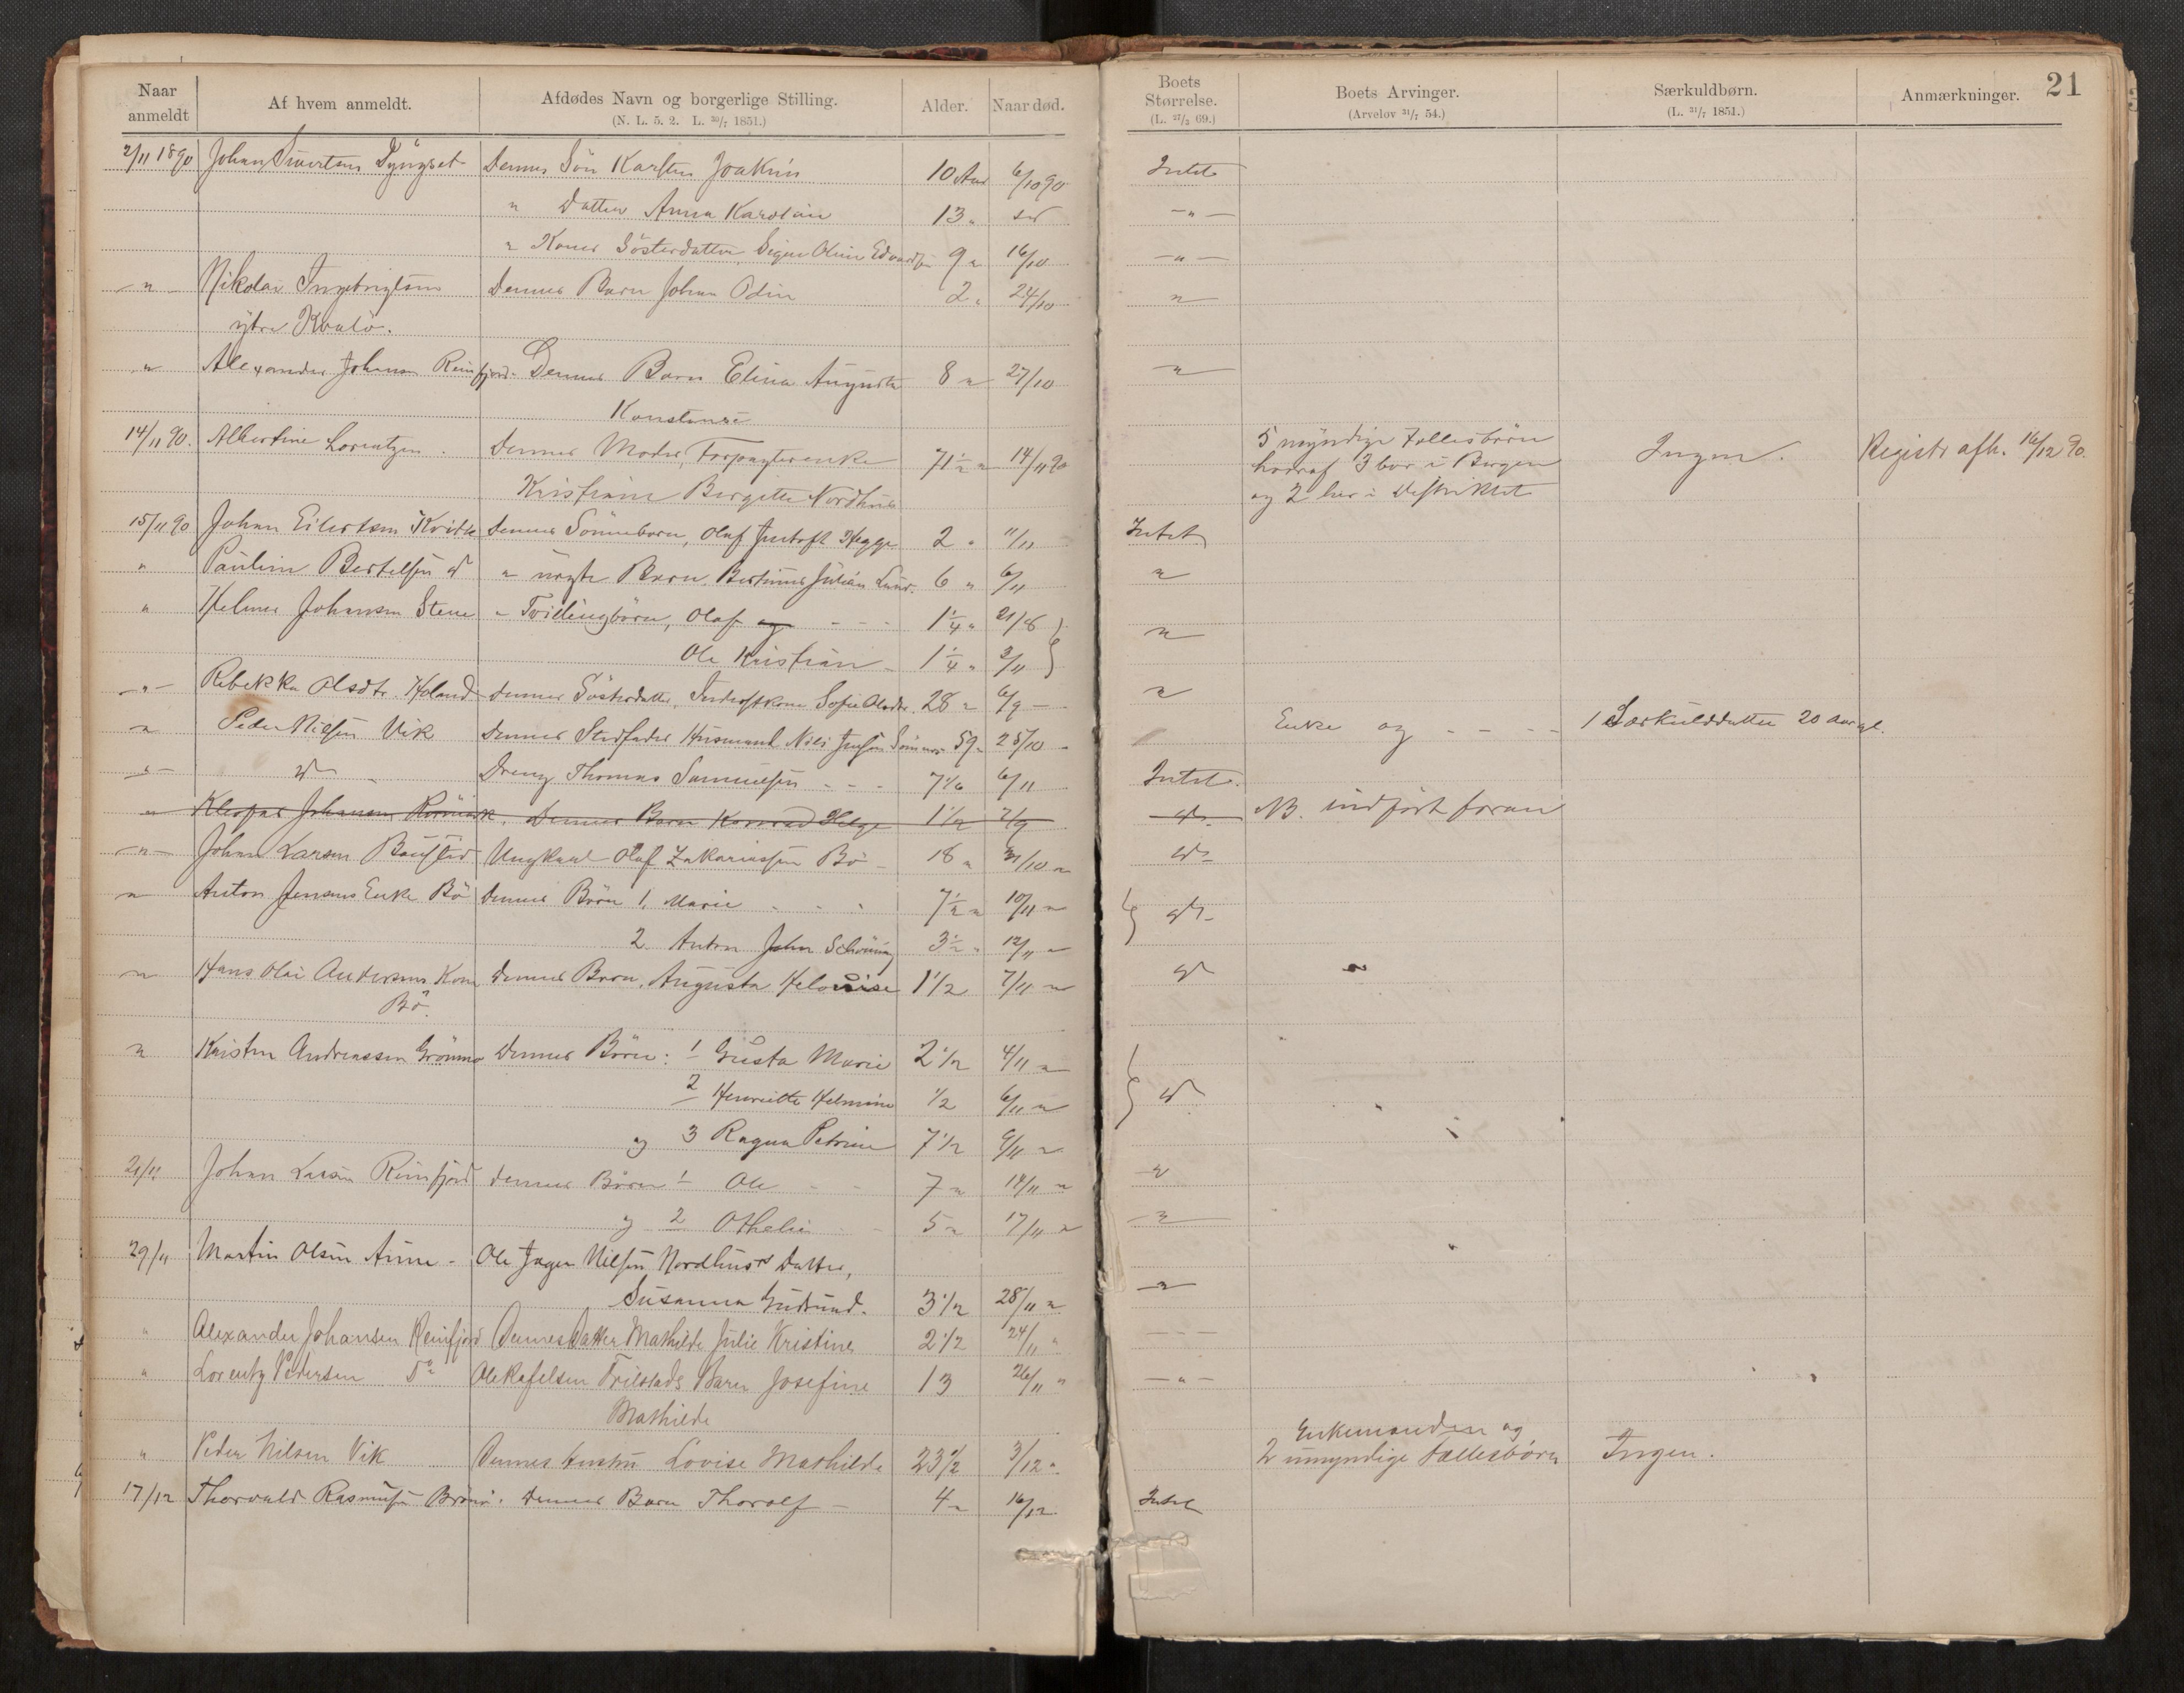 Naar anmeldt
Af hvem anmeldt.
Afdødes Navn og borgerlige Stilling.
(N. L. 5. 2. L. 30/7 1851.)
Alder.
Naar død.
Boets Størrelse.
(L. 27/3 69.)
Boets Arvinger.
(Arvelov 31/7 54.)
Særkuldbørn.
(L. 31/7 1851.)
Anmærkninger.
21
2/11 1890 Johan Sivertsen Dennes Søn Karsten Joakim 10 Aar 6/10 90 Intet
" Datter Anna Karoline 13 " — " —
" Kones Søsterdatter, Oline 9 " 16/10 — " —
— " — Nikolai Ingebrigtsen Dennes Barn Johan Odin 2 " 24/10 "
ytre Kvalø.
" Alexander Johansen Reinfjord. Dennes Barn Elina Augusta 8 " 27/10 "
Konstanse
14/11 90. Albertine Lorentzen. Dennes Moder, Forpagterenke 71 1/2 " 14/11 90 5 myndige Fællesbörn Ingen. Registr. afh. 16/12 90.
hvoraf 3 bor i Bergen
Kristiane Bergitte Nordhus
og 2 her i Distriktet
15/11 90 Johan Eilertsen Dennes Sönnebarn, Olaf Hegge 2 " 11/11 Intet
" Pauline Bertelsen " uægte Barn, Julian 6 " 6/11 "
" Helmer Johansen Stene " Tvillingbörn, Olaf og 1 1/4 " 21/8 "
Ole Kristian 1 1/4 " 3/11
— " — Rebekka Olsdtr. Holand Dennes Søsterdatter, Sofie Olsdtr. 28 " 6/9 "
" Peder Nielsen Vik Dennes Stedfader Husmand Nils Jensen 59 " 25/10 Enke og - - - 1 Særkulddatter 20 Aar gl.
— " — Dreng Thomas Samuelsen 7 1/6 6/11 Intet.
" Johansen Dennes Barn Konrad Helge 1 1/2 7/9 NB. indført foran
— " — Johan Larsen Ungkarl Olaf Zakariassen Bö 18 " 31/10 "
" Anton Jensens Enke Bö Dennes Börn 1, Marie 7 1/2 " 10/11 "
2. Anton John Schöning 3 1/2 " 12/11 "
" Hans Olai Andersens Kone Dennes Barn, Augusta Helovise 1 1/2 7/11 "
Bö.
" Kristen Andreassen Grønmo Dennes Börn: 1 Gusta Marie 2 1/2 4/11 "
2 Henriette Helmine 1/2 6/11 "
og 3 Ragna Petrine 7 1/2 9/11 "
21/11 Johan Larsen Reinfjord Dennes Börn 1 Ole 7 " 14/11 "
og 2 Othelie 5 " 17/11 "
29/11 Martin Olsen Aune - Ole Jager Nilsen Nordhus's Datter,
Susanna Gudrund. 3 1/2 28/11 "
" Alexander Johansen Reinfjord Dennes Datter Mathilde Julie Kristine 2 1/2 24/11 " - - -
" Lorentz Pedersen Do Ole Rafelsen Barn Josefine 13 26/11 " — " —
Mathilde
Enkemanden og
" Peder Nilsen Vik Dennes Hustru Lovise Mathilde 23 1/2 3/12 " 2 umyndige Fællesbørn Ingen.
17/12 Thorvald Rasmussen Brönö. Dennes Barn Thorolf 4 " 16/12 Intet